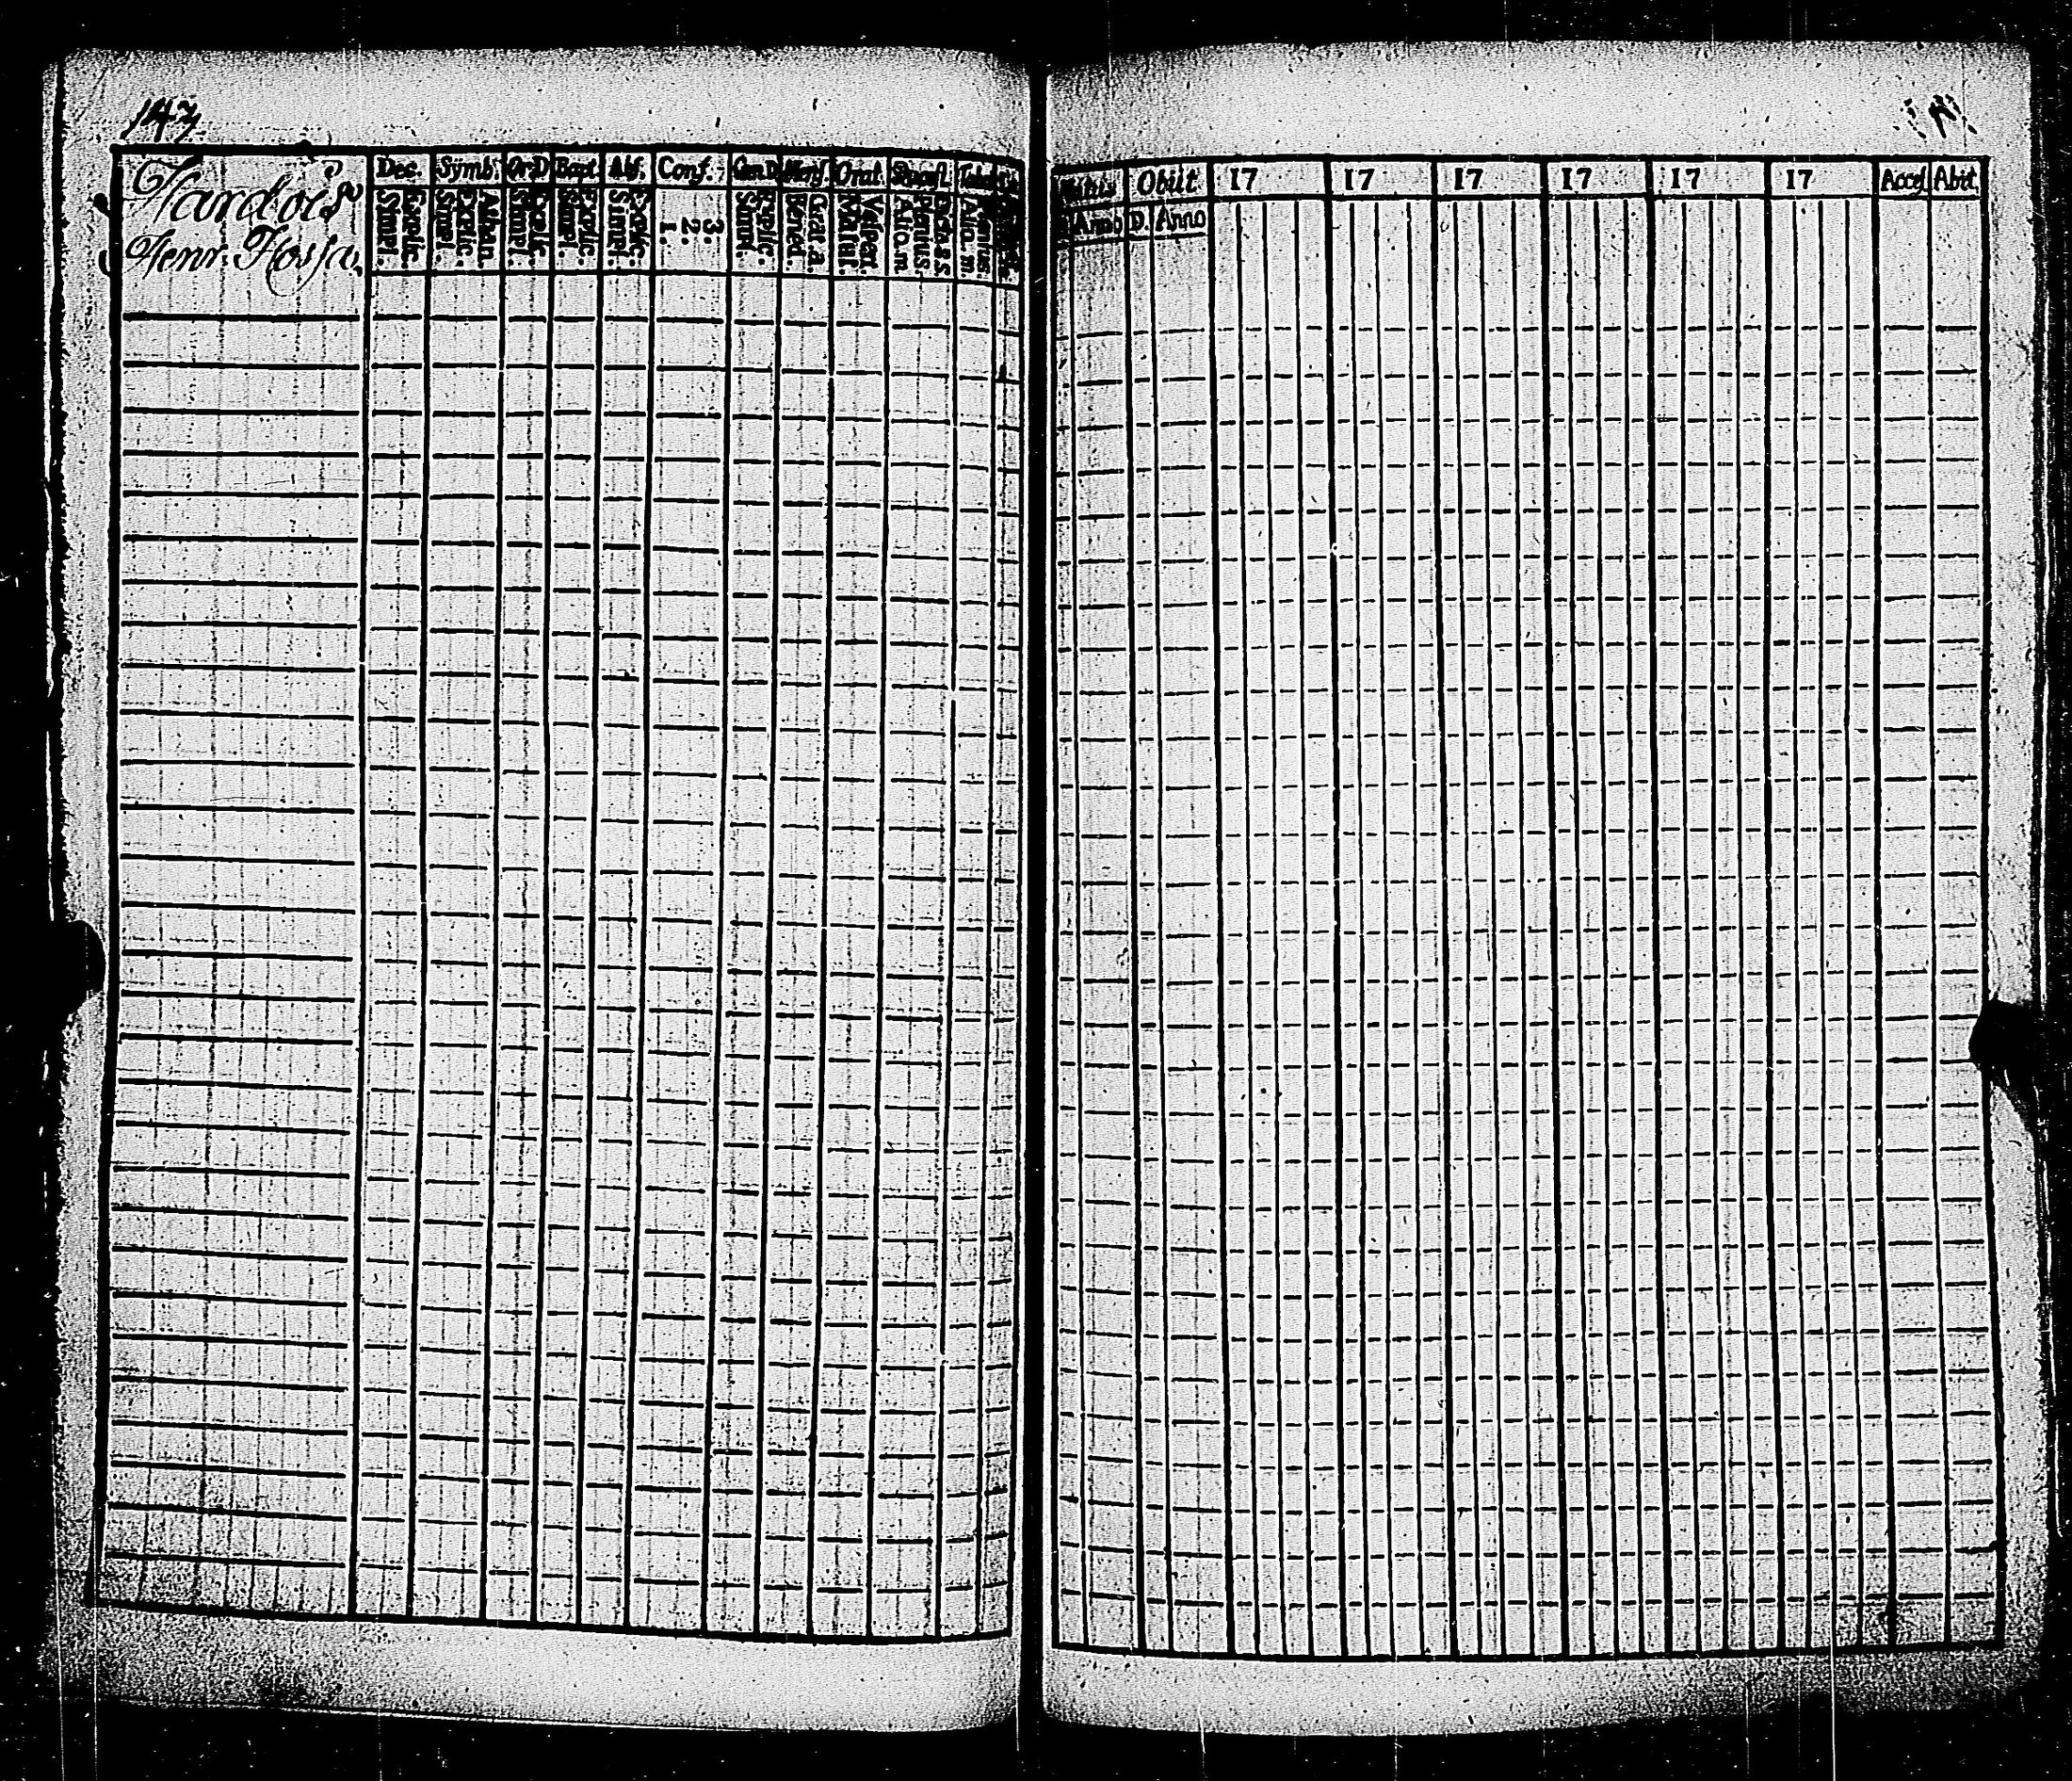 147
Hardois
Henr. Hossa.
Dec. Symb. Or.D Bapt. Abs. Conf. Cœn.D. Mens. Orat. Quæst. Tabul.
Explic. Simpl.
Athan. Explic. Simpl.
Explic. Simpl.
Explic. Simpl.
Explic. Simpl.
3. 2. 1.
Explic. Simpl.
Grat. a. Bened.
Vespert. Matut.
Dicta s.s. Plenius. Aliq. m.
Plenius. Aliq. m.
Natus Obiit 17 17 17 17 17 17 Acces. Abiit
Anno D. Anno